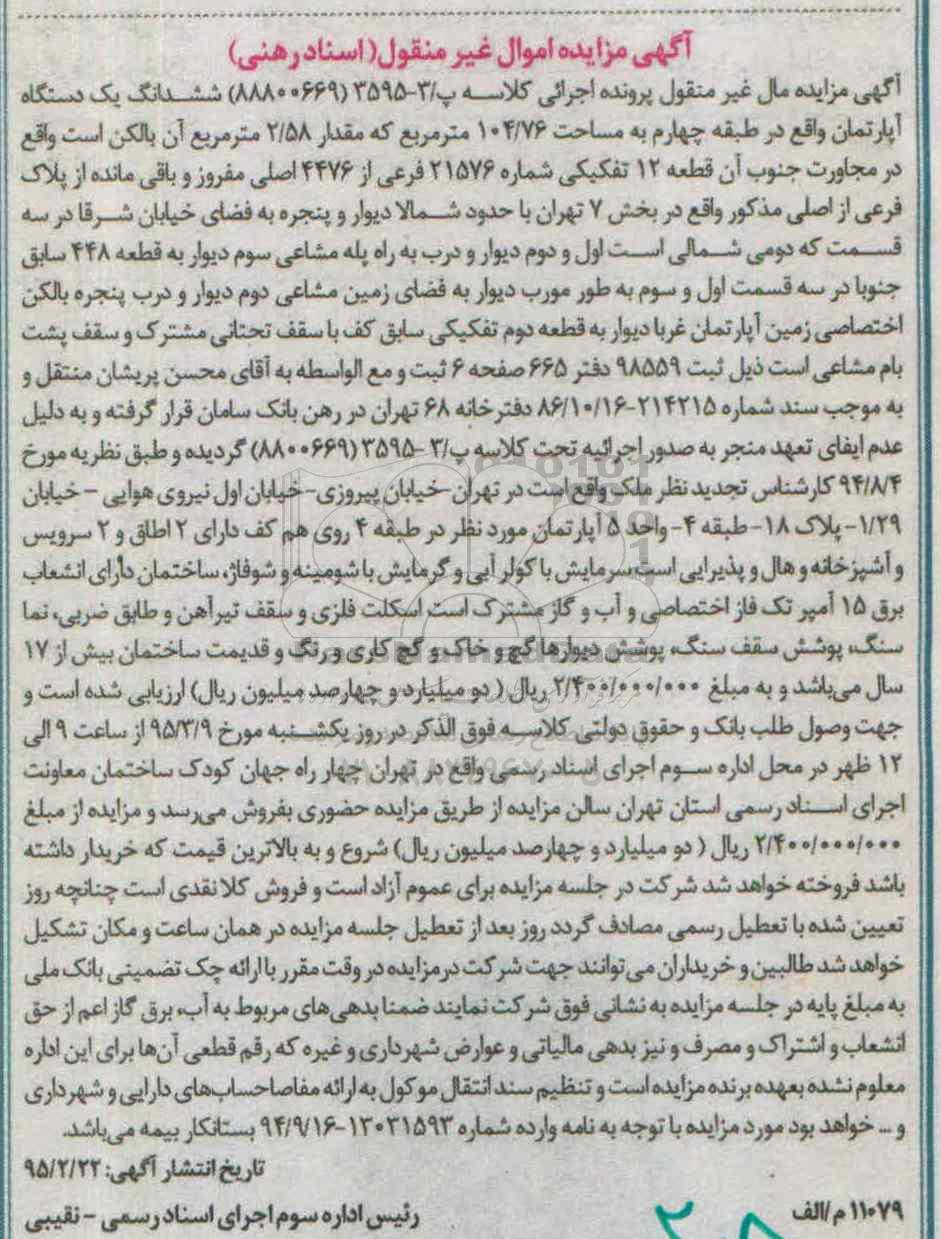 آگهی مزایده اموال غیر منقول(اسناد رهنی)
آگهی مزایده مال غیر منقول پرونده اجرائی کلاسه پ/۳-۳۵۹۵ (۸۸۸۰۰۶۶۹) ششدانگ یک دستگاه
آپارتمان واقع در طبقه چهارم به مساحت ۱۰۴/۷۶ مترمربع که مقدار ۲/۵۸ مترمربع آن بالکن است واقع
در مجاورت جنوب آن قطعه ۱۲ تفکیکی شماره ۲۱۵۷۶ فرعی از ۴۴۷۶ اصلی مفروز و باقی مانده از پلاک
فرعی از اصلی مذکور واقع در بخش ۷ تهران با حدود شمالا دیوار و پنجره به فضای خیابان شرقا در سه
قسمت که دومی شمالی است اول و دوم دیوار و درب به راه پله مشاعی سوم دیوار به قطعه ۴۴۸ سابق
جنوبا در سه قسمت اول و سوم به طور مورب دیوار به فضای زمین مشاعی دوم دیوار و درب پنجره بالکن
اختصاصی زمین آپارتمان غربا دیوار به قطعه دوم تفکیکی سابق کف با سقف تحتانی مشترک و سقف پشت
بام مشاعی است ذیل ثبت ۹۸۵۵۹ دفتر ۶۶۵ صفحه ۶ ثبت و مع الواسطه به آقای محسن پریشان منتقل و
به موجب سند شماره ۲۱۴۲۱۵-۸۶/۱۰/۱۶ دفترخانه ۶۸ تهران در رهن بانک سامان قرار گرفته و به دلیل
عدم ایفای تعهد منجر به صدور اجرائیه تحت کلاسه پ/۳-۳۵۹۵ (۸۸۰۰۶۶۹) گردیده و طبق نظریه مورخ
۹۴/۸/۴ کارشناس تجدید نظر ملک واقع است در تهران-خیابان پیروزی-خیابان اول نیروی هوایی - خیابان
۱/۲۹- پلاک ۱۸- طبقه ۴- واحد ۵ آپارتمان مورد نظر در طبقه ۴ روی هم کف دارای ۲ اطاق و ۲ سرویس
و آشپزخانه و هال و پذیرایی است سرمایش با کولر آبی و گرمایش با شومینه و شوفاژ، ساختمان دارای انشعاب
برق ۱۵ آمپر تک فاز اختصاصی و آب و گاز مشترک است اسکلت فلزی و سقف تیرآهن و طابق ضربی، نما
سنگ، پوشش سقف سنگ، پوشش دیوارها گچ و خاک و گچ کاری و رنگ و قدیمت ساختمان بیش از ۱۷
سال می‌باشد و به مبلغ ۲/۴۰۰/۰۰۰/۰۰۰ ریال ( دو میلیارد و چهارصد میلیون ریال) ارزیابی شده است و
جهت وصول طلب بانک و حقوق دولتی کلاسه فوق الذکر در روز یکشنبه مورخ ۹۵/۳/۹ از ساعت ۹ الی
۱۲ ظهر در محل اداره سوم اجرای اسناد رسمی واقع در تهران چهار راه جهان کودک ساختمان معاونت
اجرای اسناد رسمی استان تهران سالن مزایده از طریق مزایده حضوری بفروش می‌رسد و مزایده از مبلغ
۲/۴۰۰/۰۰۰/۰۰۰ ریال ( دو میلیارد و چهارصد میلیون ریال) شروع و به بالاترین قیمت که خریدار داشته
باشد فروخته خواهد شد شرکت در جلسه مزایده برای عموم آزاد است و فروش کلا نقدی است چنانچه روز
تعیین شده با تعطیل رسمی مصادف گردد روز بعد از تعطیل جلسه مزایده در همان ساعت و مکان تشکیل
خواهد شد طالبین و خریداران می‌توانند جهت شرکت در مزایده در وقت مقرر با ارائه چک تضمینی بانک ملی
به مبلغ پایه در جلسه مزایده به نشانی فوق شرکت نمایند ضمنا بدهی‌های مربوط به آب، برق گاز اعم از حق
انشعاب و اشتراک و مصرف و نیز بدهی مالیاتی و عوارض شهرداری و غیره که رقم قطعی آن‌ها برای این اداره
معلوم نشده بعهده برنده مزایده است و تنظیم سند انتقال موکول به ارائه مفاصاحساب‌های دارایی و شهرداری
و ... خواهد بود مورد مزایده با توجه به نامه وارده شماره ۱۳۰۳۱۵۹۳-۹۴/۹/۱۶ بستانکار بیمه می‌باشد.
تاریخ انتشار آگهی: ۹۵/۲/۲۲
۱۱۰۷۹ م/الف
رئیس اداره سوم اجرای اسناد رسمی - نقیبی